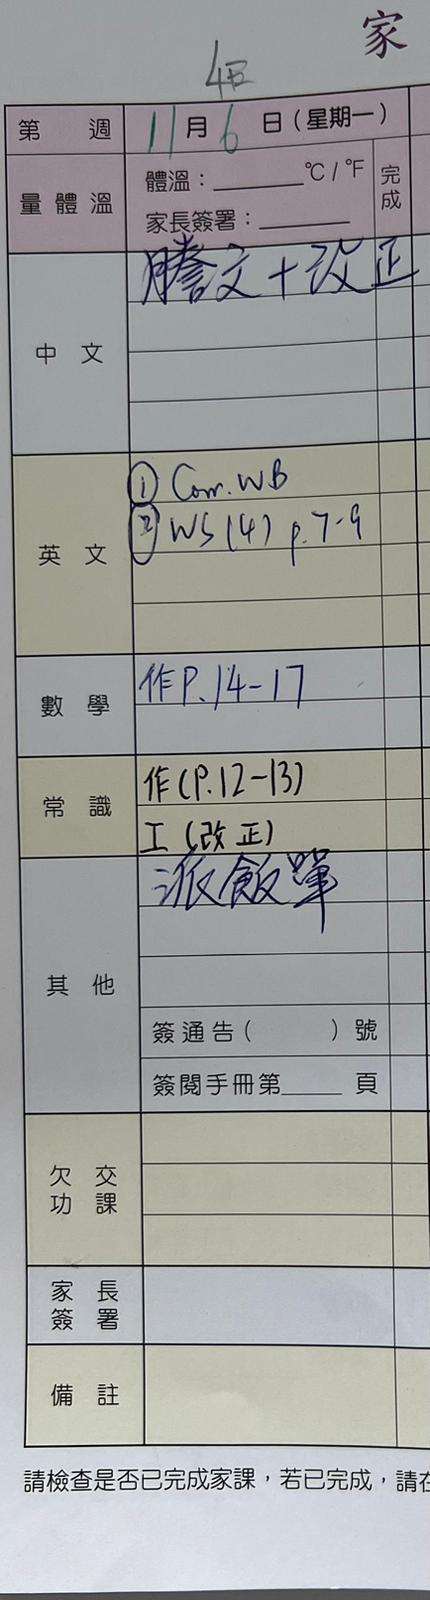 家
4E
第 週 11月6日(星期一)
量體溫 體溫：______°C / °F 完成
家長簽署：______
中文 謄文+改正
英文 ① Corr. WB
② WS (4) p.7-9
數學 作P.14-17
常識 作(P.12-13)
工(改正)
其他 派飯單
簽通告( )號
簽閱手冊第____頁
欠交功課
家長簽署
備註
請檢查是否已完成家課，若已完成，請在